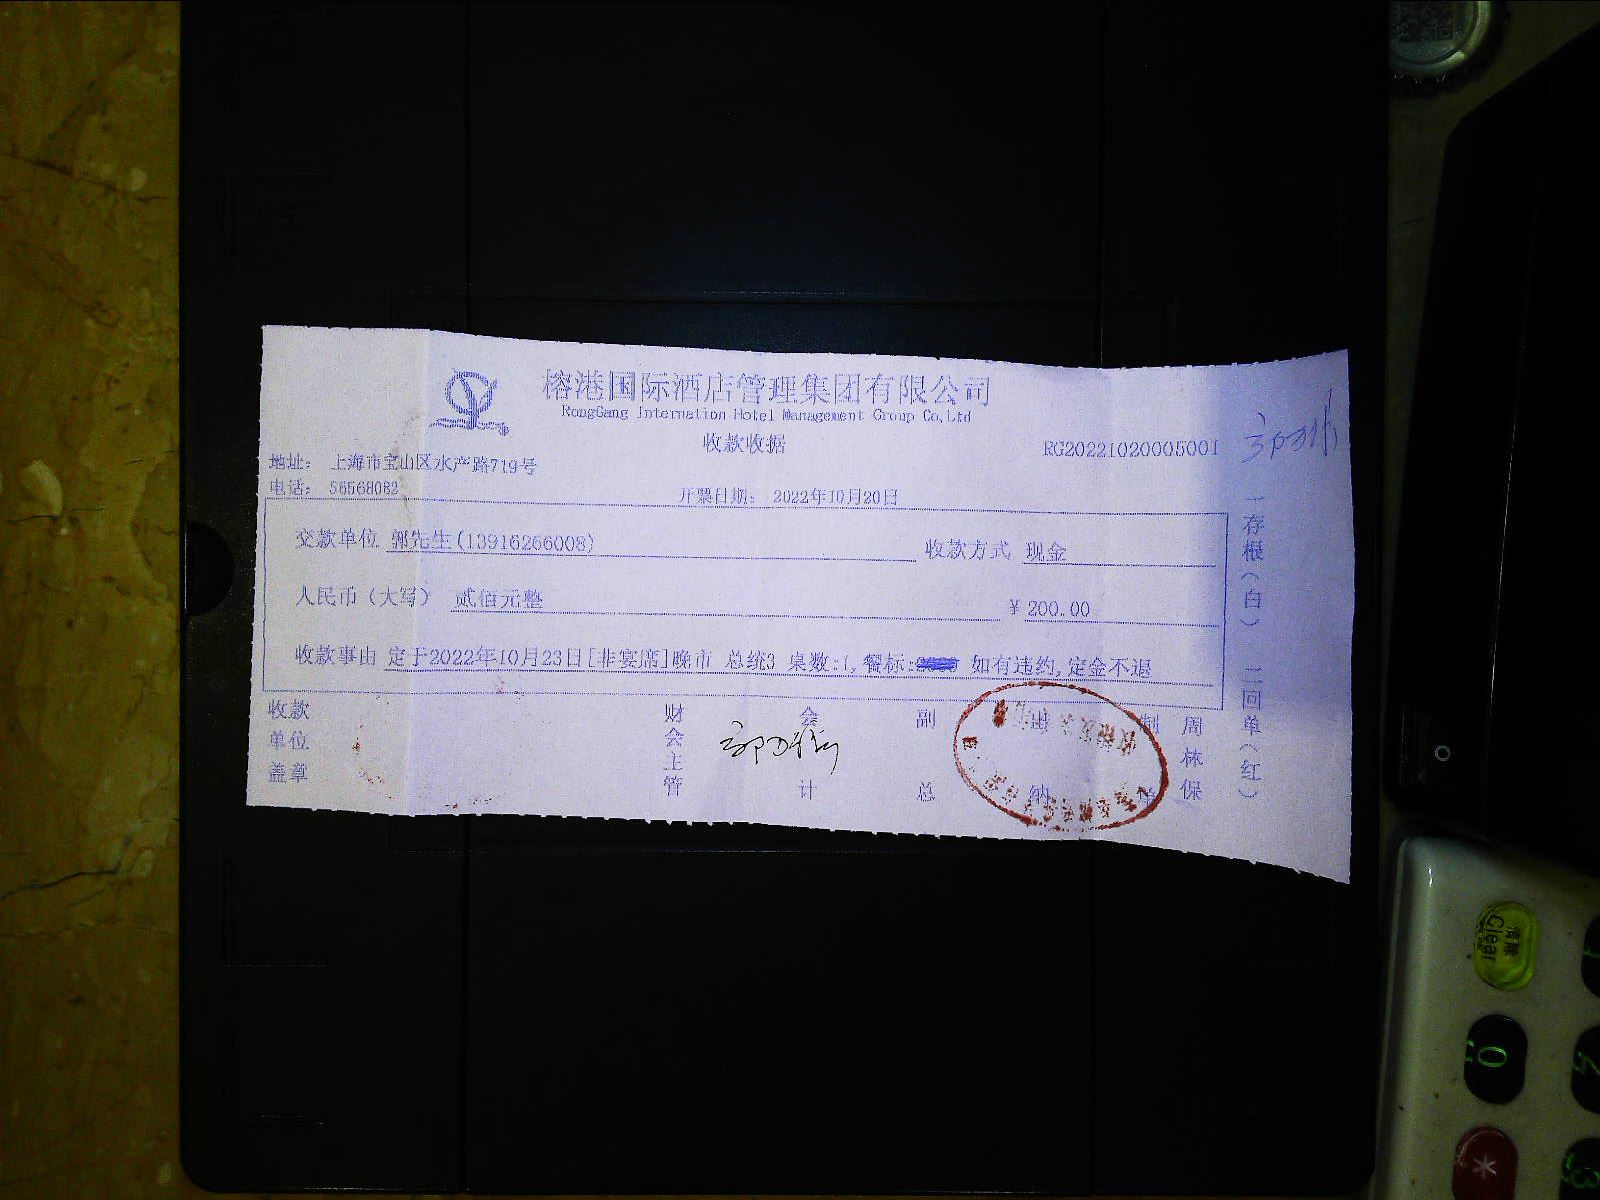 榕港国际酒店管理集团有限公司
RongGang Internation Hotel Management Group Co,Ltd
收款收据
RG20221020005001
地址： 上海市宝山区水产路719号
电话： 56568082
开票日期： 2022年10月20日
交款单位 郭先生(13916266008)
收款方式 现金
人民币（大写） 贰佰元整
￥ 200.00
收款事由 定于2022年10月23日[非宴席]晚市 总统3 桌数:1,餐标: 如有违约,定金不退
收款单位盖章
财会主管
会计
副总
出纳
制单
周林保
一存根（白） 二回单（红）
清除
Clear
0
*